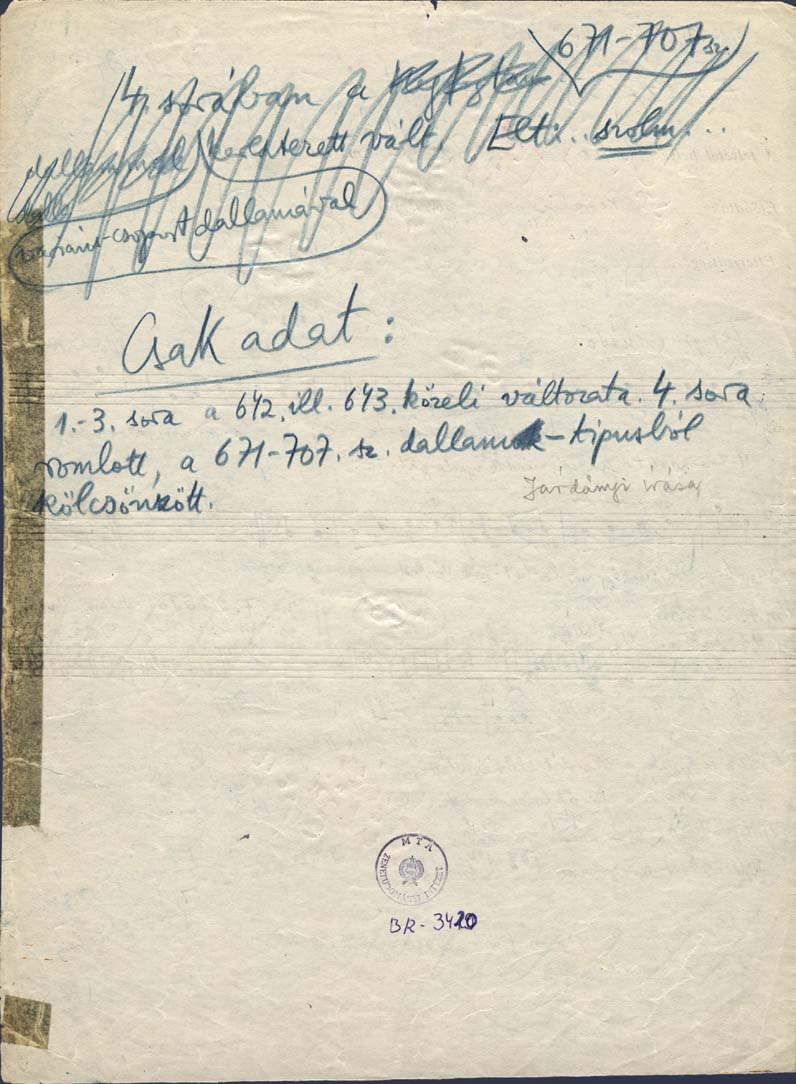 671-707 sz.
4. sorában a
keresztezett vált. Eltér. szolm...
dallamának
dalla
variáns-csoport dallamával
Csak adat:
1.-3. sora a 642. ill. 643. közeli változata. 4. sora
romlott, a 671-707. sz. dallam-típusból
kölcsönzött.
Járdányi írása
MTA
ZENETUDOMÁNYI INTÉZET
BR-3420